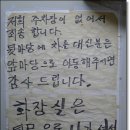 저희 주차장이 없어서
죄송 합니다.
뒷마당에 차를 대신분은
앞마당으로 이동해주시면
감사 드립니다.
화장실은